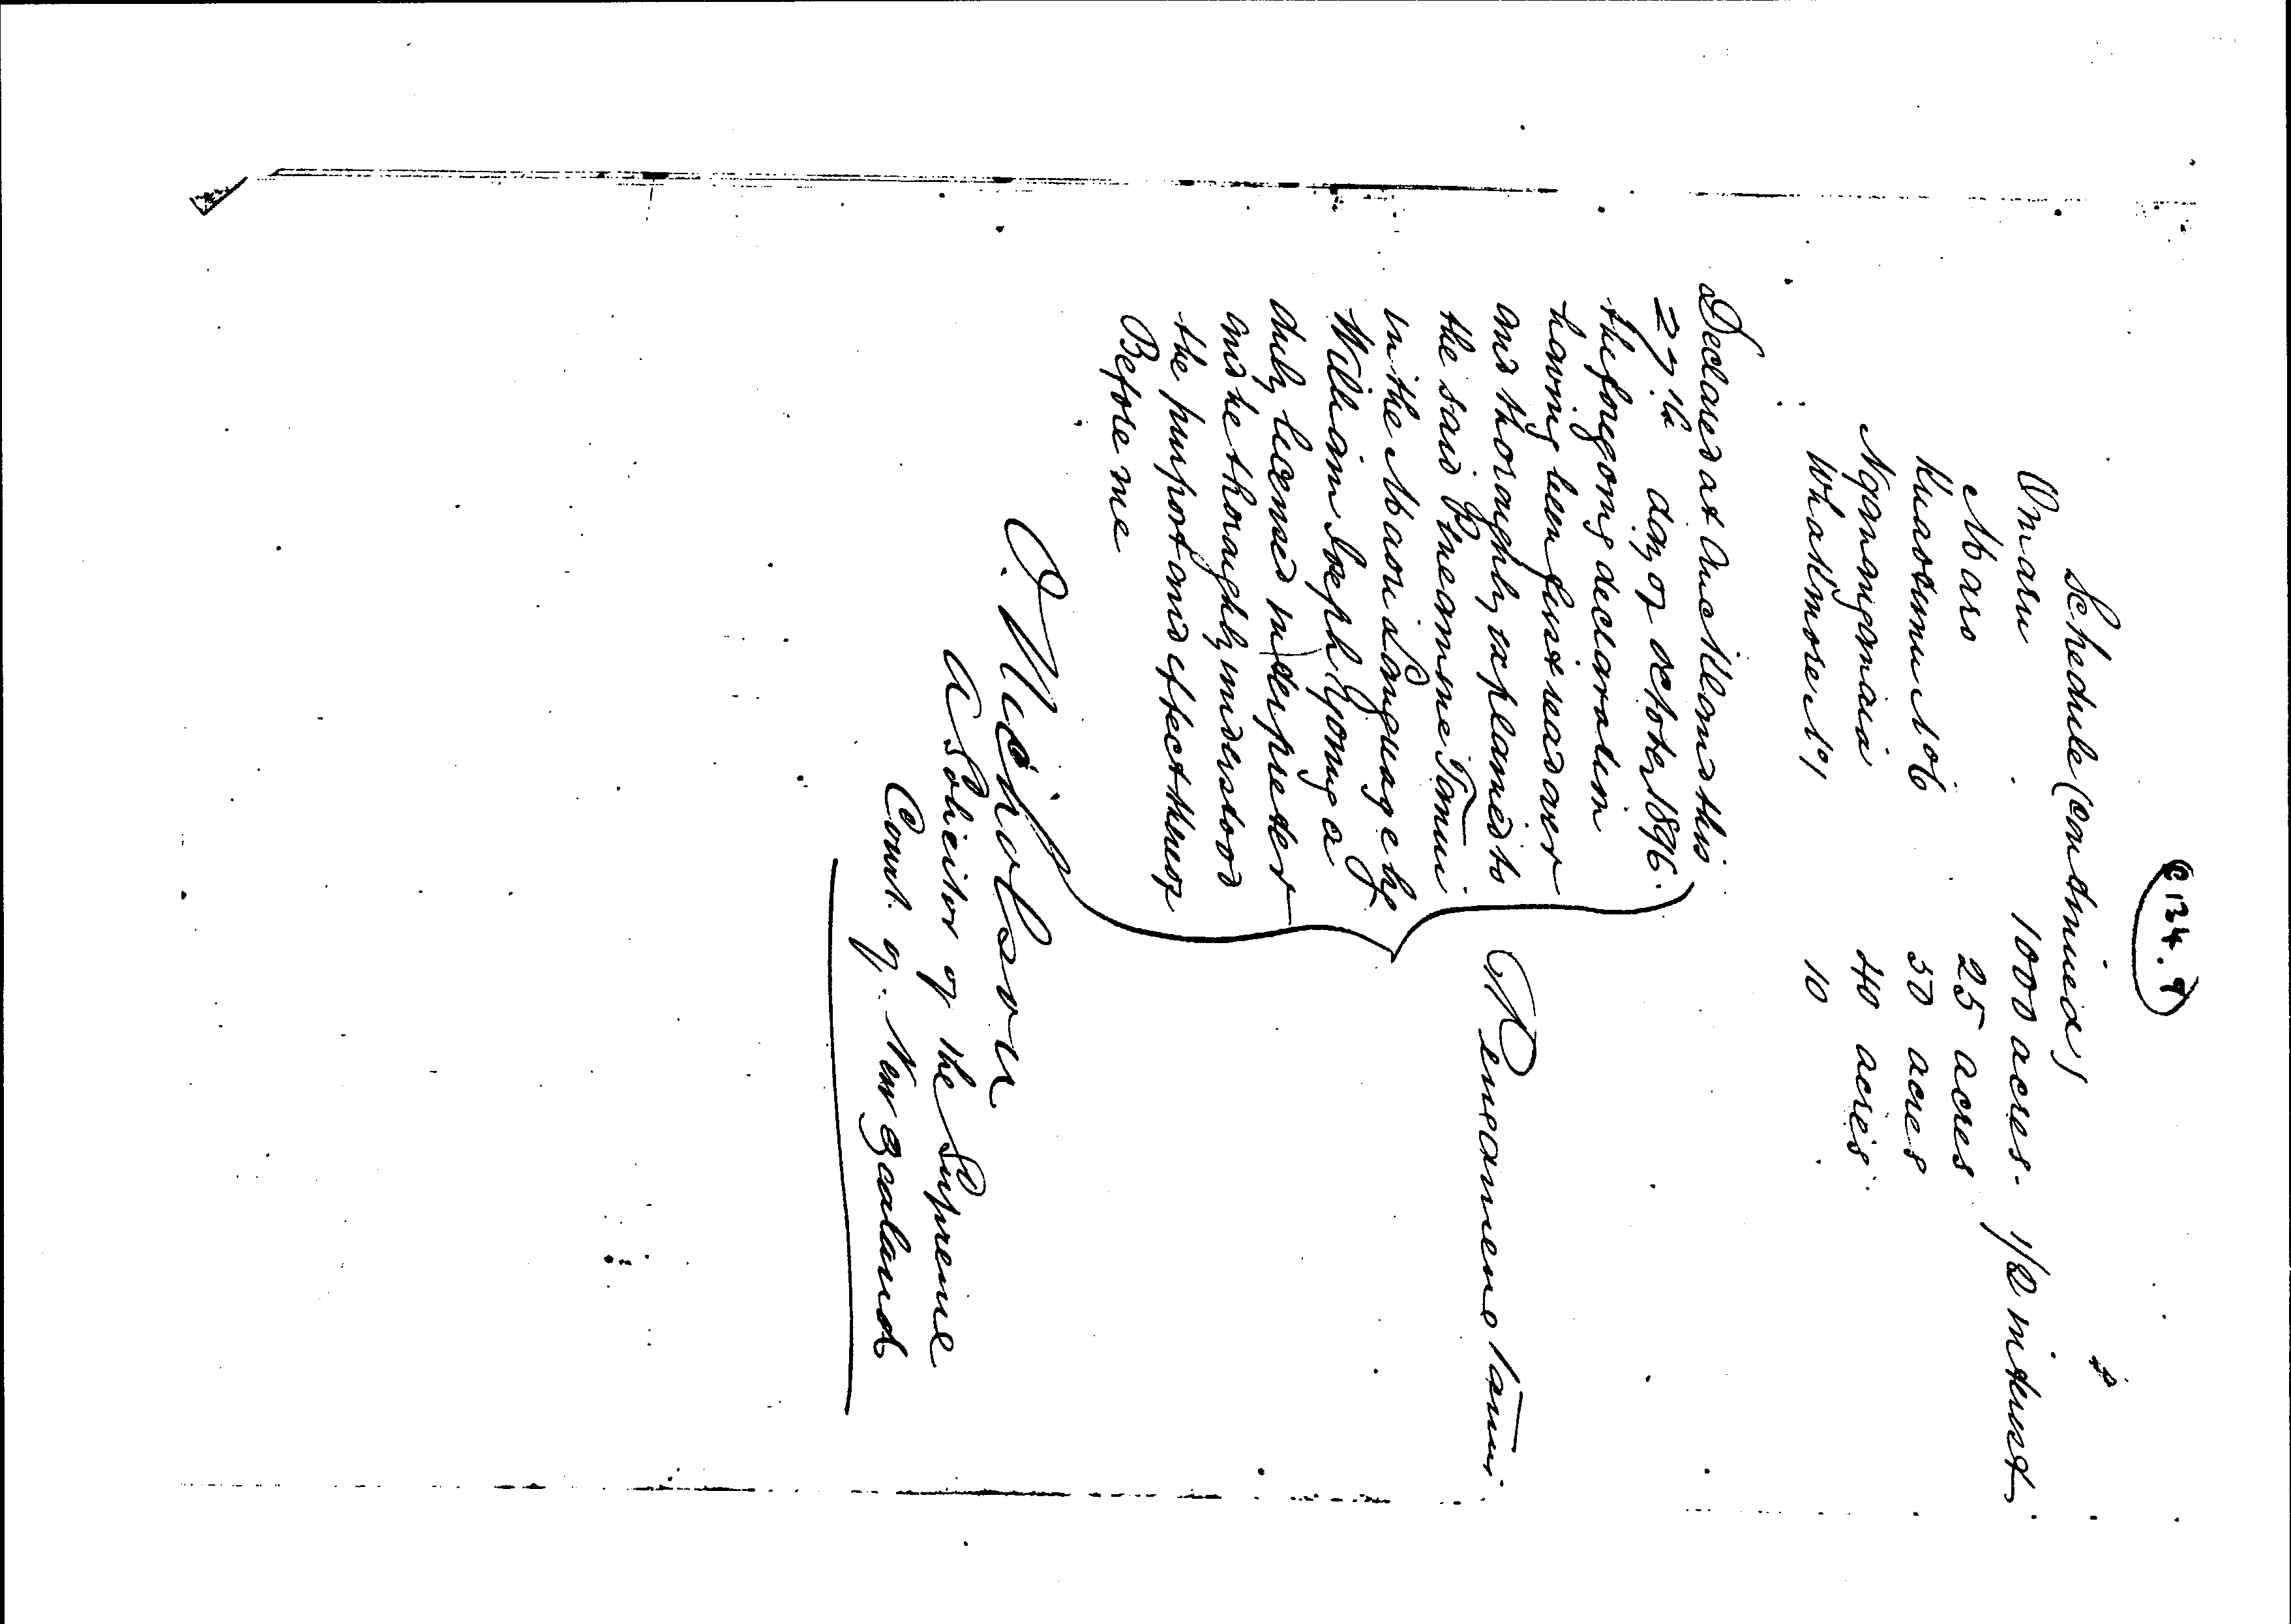 C 124. 9
Schedule (Continued)
Omaru 1000 acres. 1/2 interest
Maro 25 acres
50 acres
40 acres
10
Declared at Auckland this
27th day of October 1896.
the foregoing declaration
having been first read over
and thoroughly explained to
the said
in the Maori Language by
William Joseph Young a
duly licensed interpreter
and he thoroughly understood
the purport and effect thereof
Before me
O. Nicholson
A Solicitor of the Supreme
Court of New Zealand